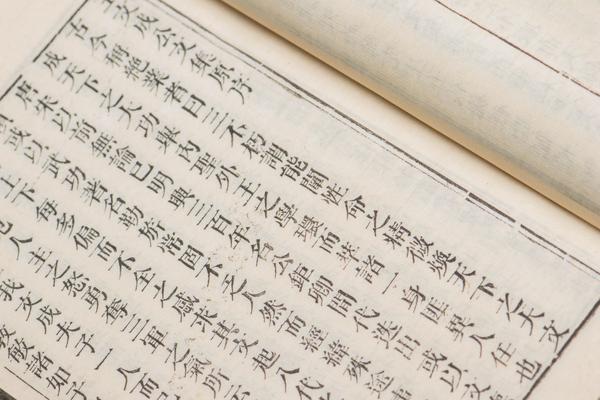 王文成公文集原序
古今稱絕業者曰三不朽謂能闡性命之精微煥天下之大文
成天下之大功舉內聖外王之學環而萃諸一身匪異人任也
唐宋以前無論已明興三百年名公鉅卿間代迭出或以文
或以武功著名勒旂常固不乏人然而經緯殊途
上下每多偏而不全之感求其文起八代
人主之怒勇奪三軍之氣所
我文成夫子一人而已
敏諸如